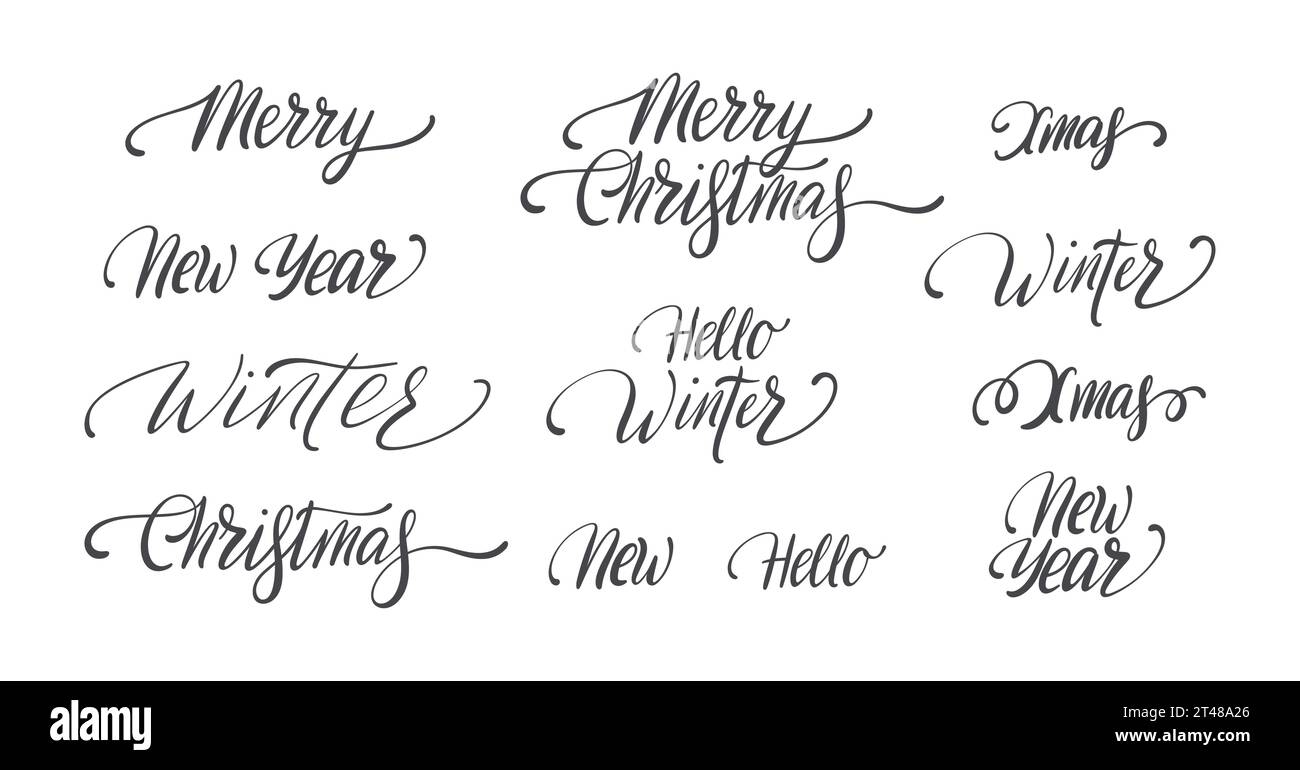 Merry
New Year
Winter
Christmas
Merry
Christmas
Hello
Winter
New Hello
Xmas
Winter
Xmas
New
Year
alamy
Image ID: 2T48A26
www.alamy.com